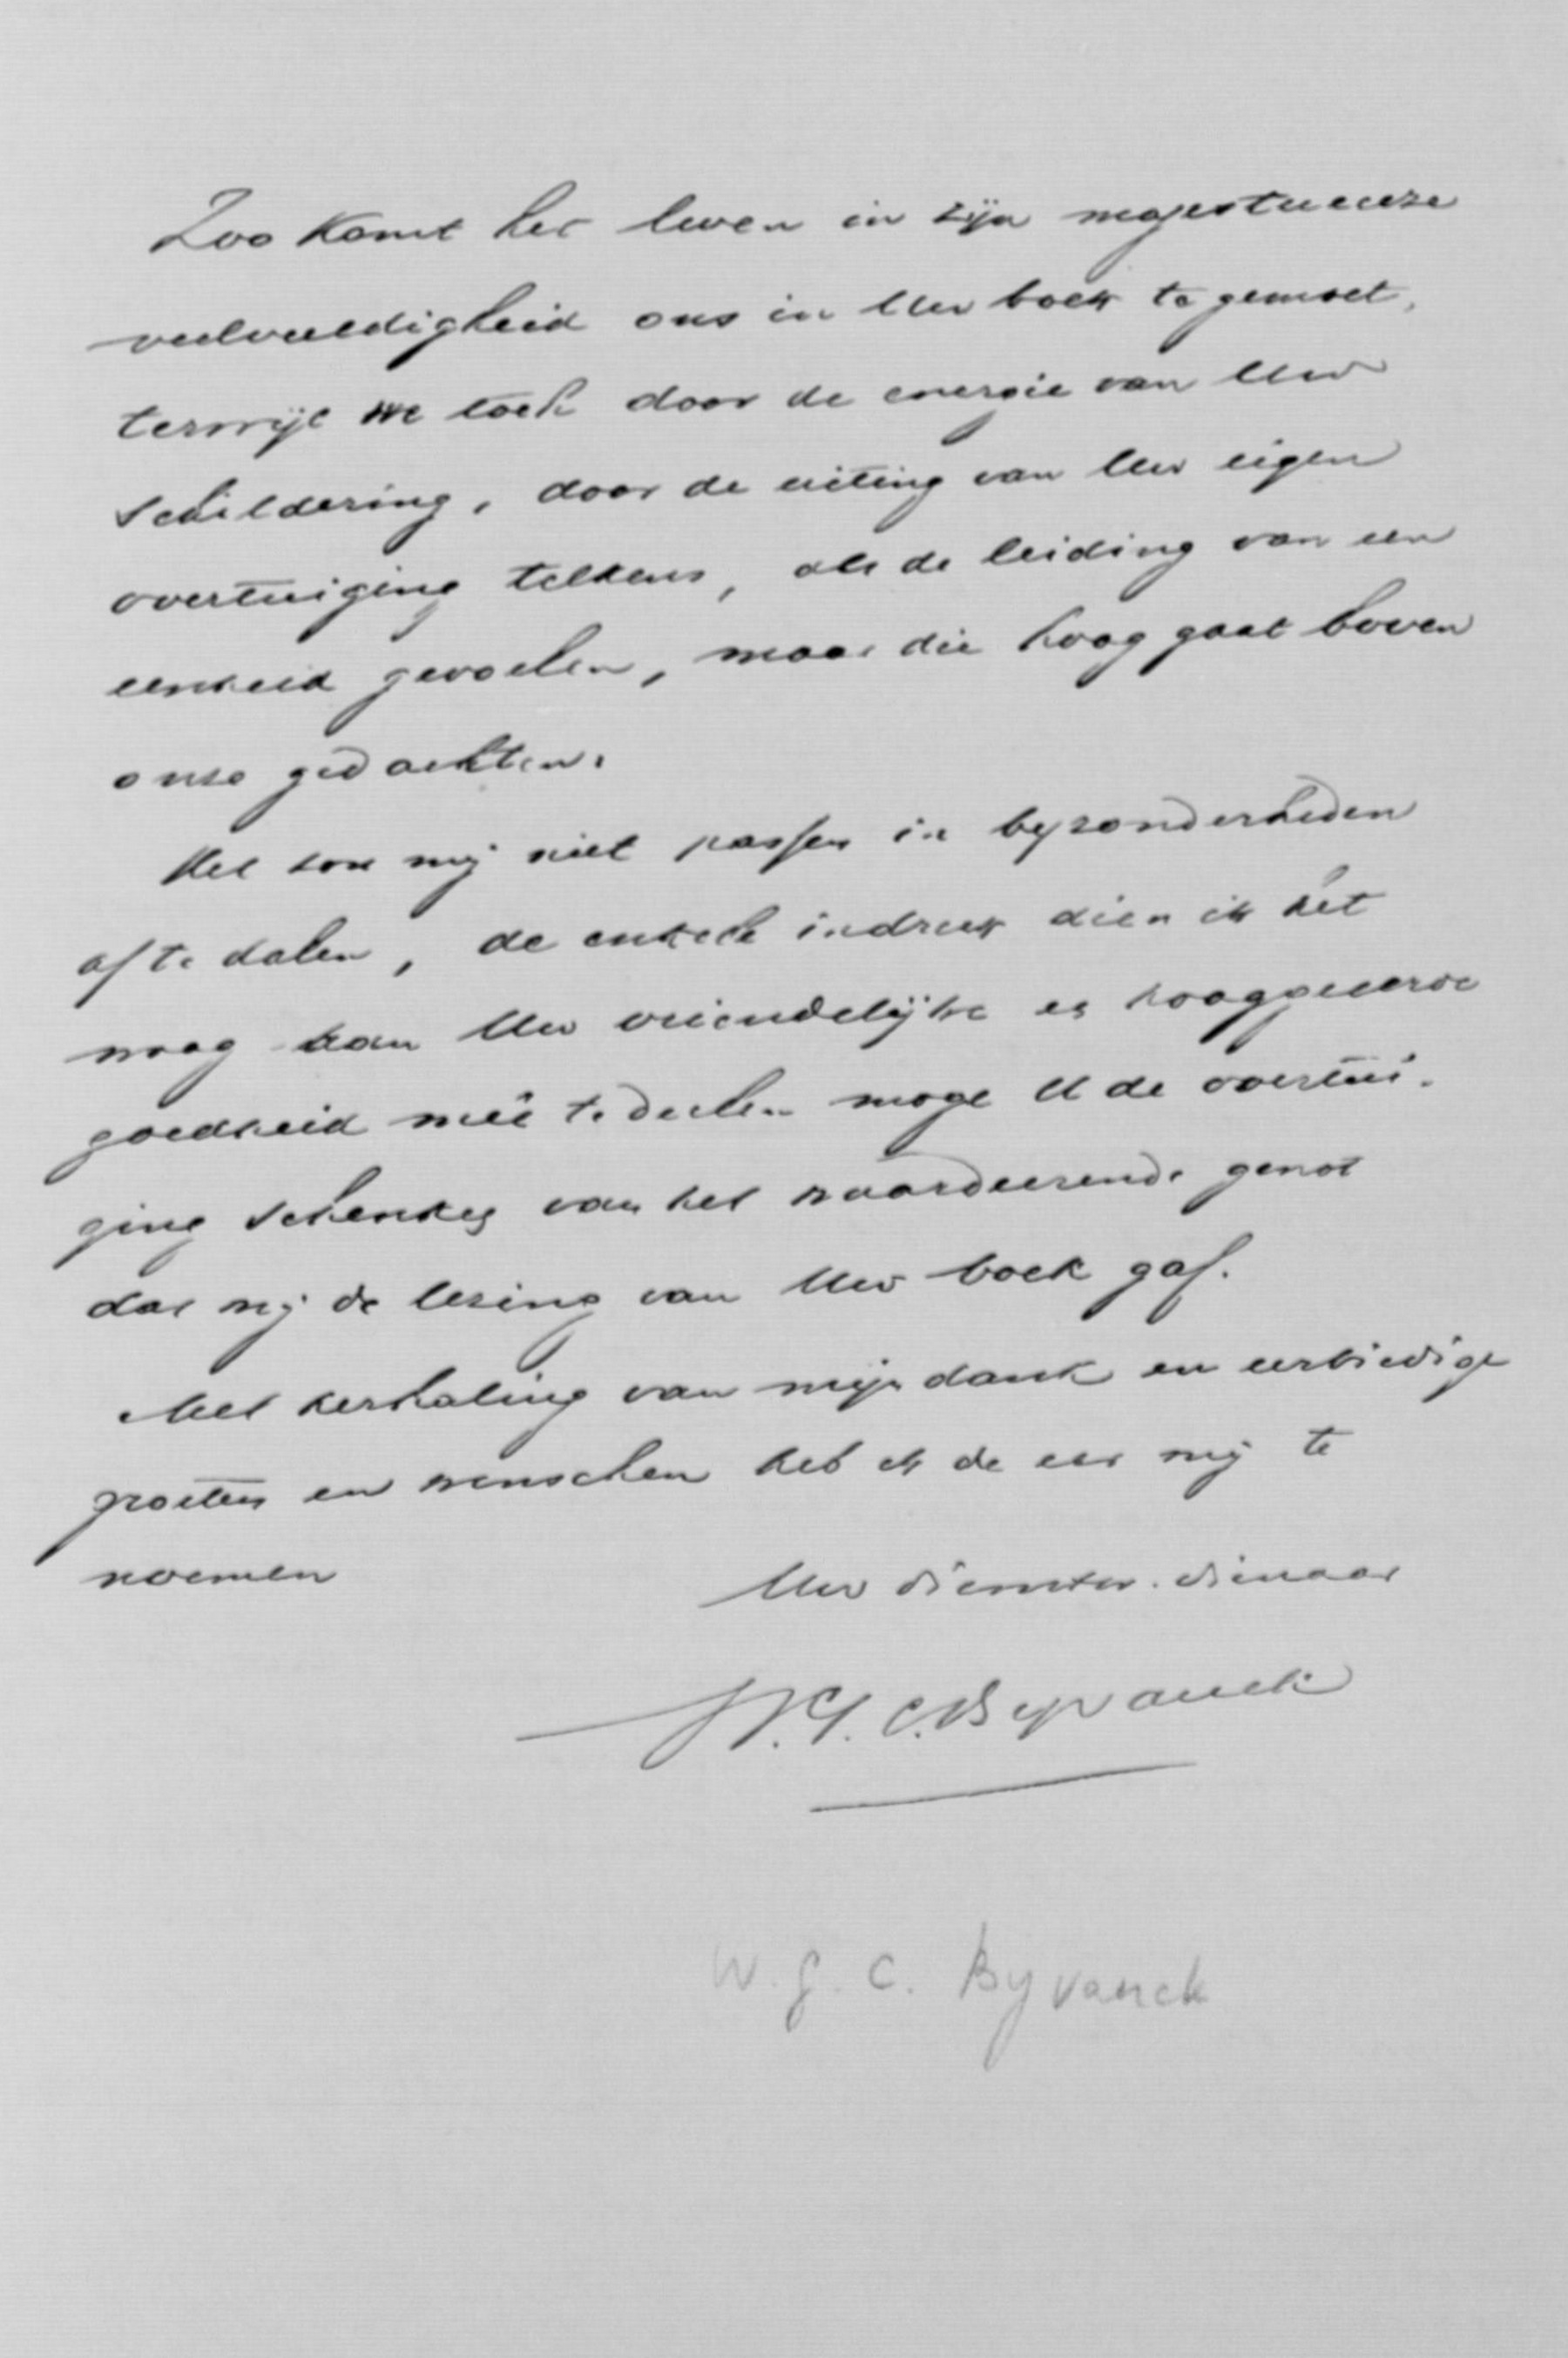 Zoo komt het leven in zijn majestueuze
veelvuldigheid ons in Uw boek te gemoet,
terwijl we toch door de energie van Uw
schildering, door de uiting van Uw eigen
overtuiging telkens, als de leiding van een
eenheid gevoelen, maar die hoog gaat boven
onze gedachten.
Het zou mij niet passen in byzonderheden
af te dalen, de enkele indruk dien ik het
waag aan Uw vriendelijke en hooggeëerde
goedheid meê te deelen moge U de overtui-
ging schenken van het waardeerende genot
dat mij de lezing van Uw boek gaf.
Met herhaling van mijn dank en eerbiedige
groeten en wenschen heb ik de eer mij te
noemen
Uw dienstw. dienaar
W.G.C. Byvanck
W. G. C. Byvanck